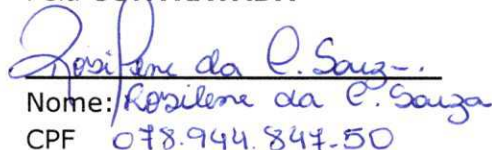 Rosilene da C. Souza
Nome: Rosilene da C. Souza
CPF 078.944.847-50